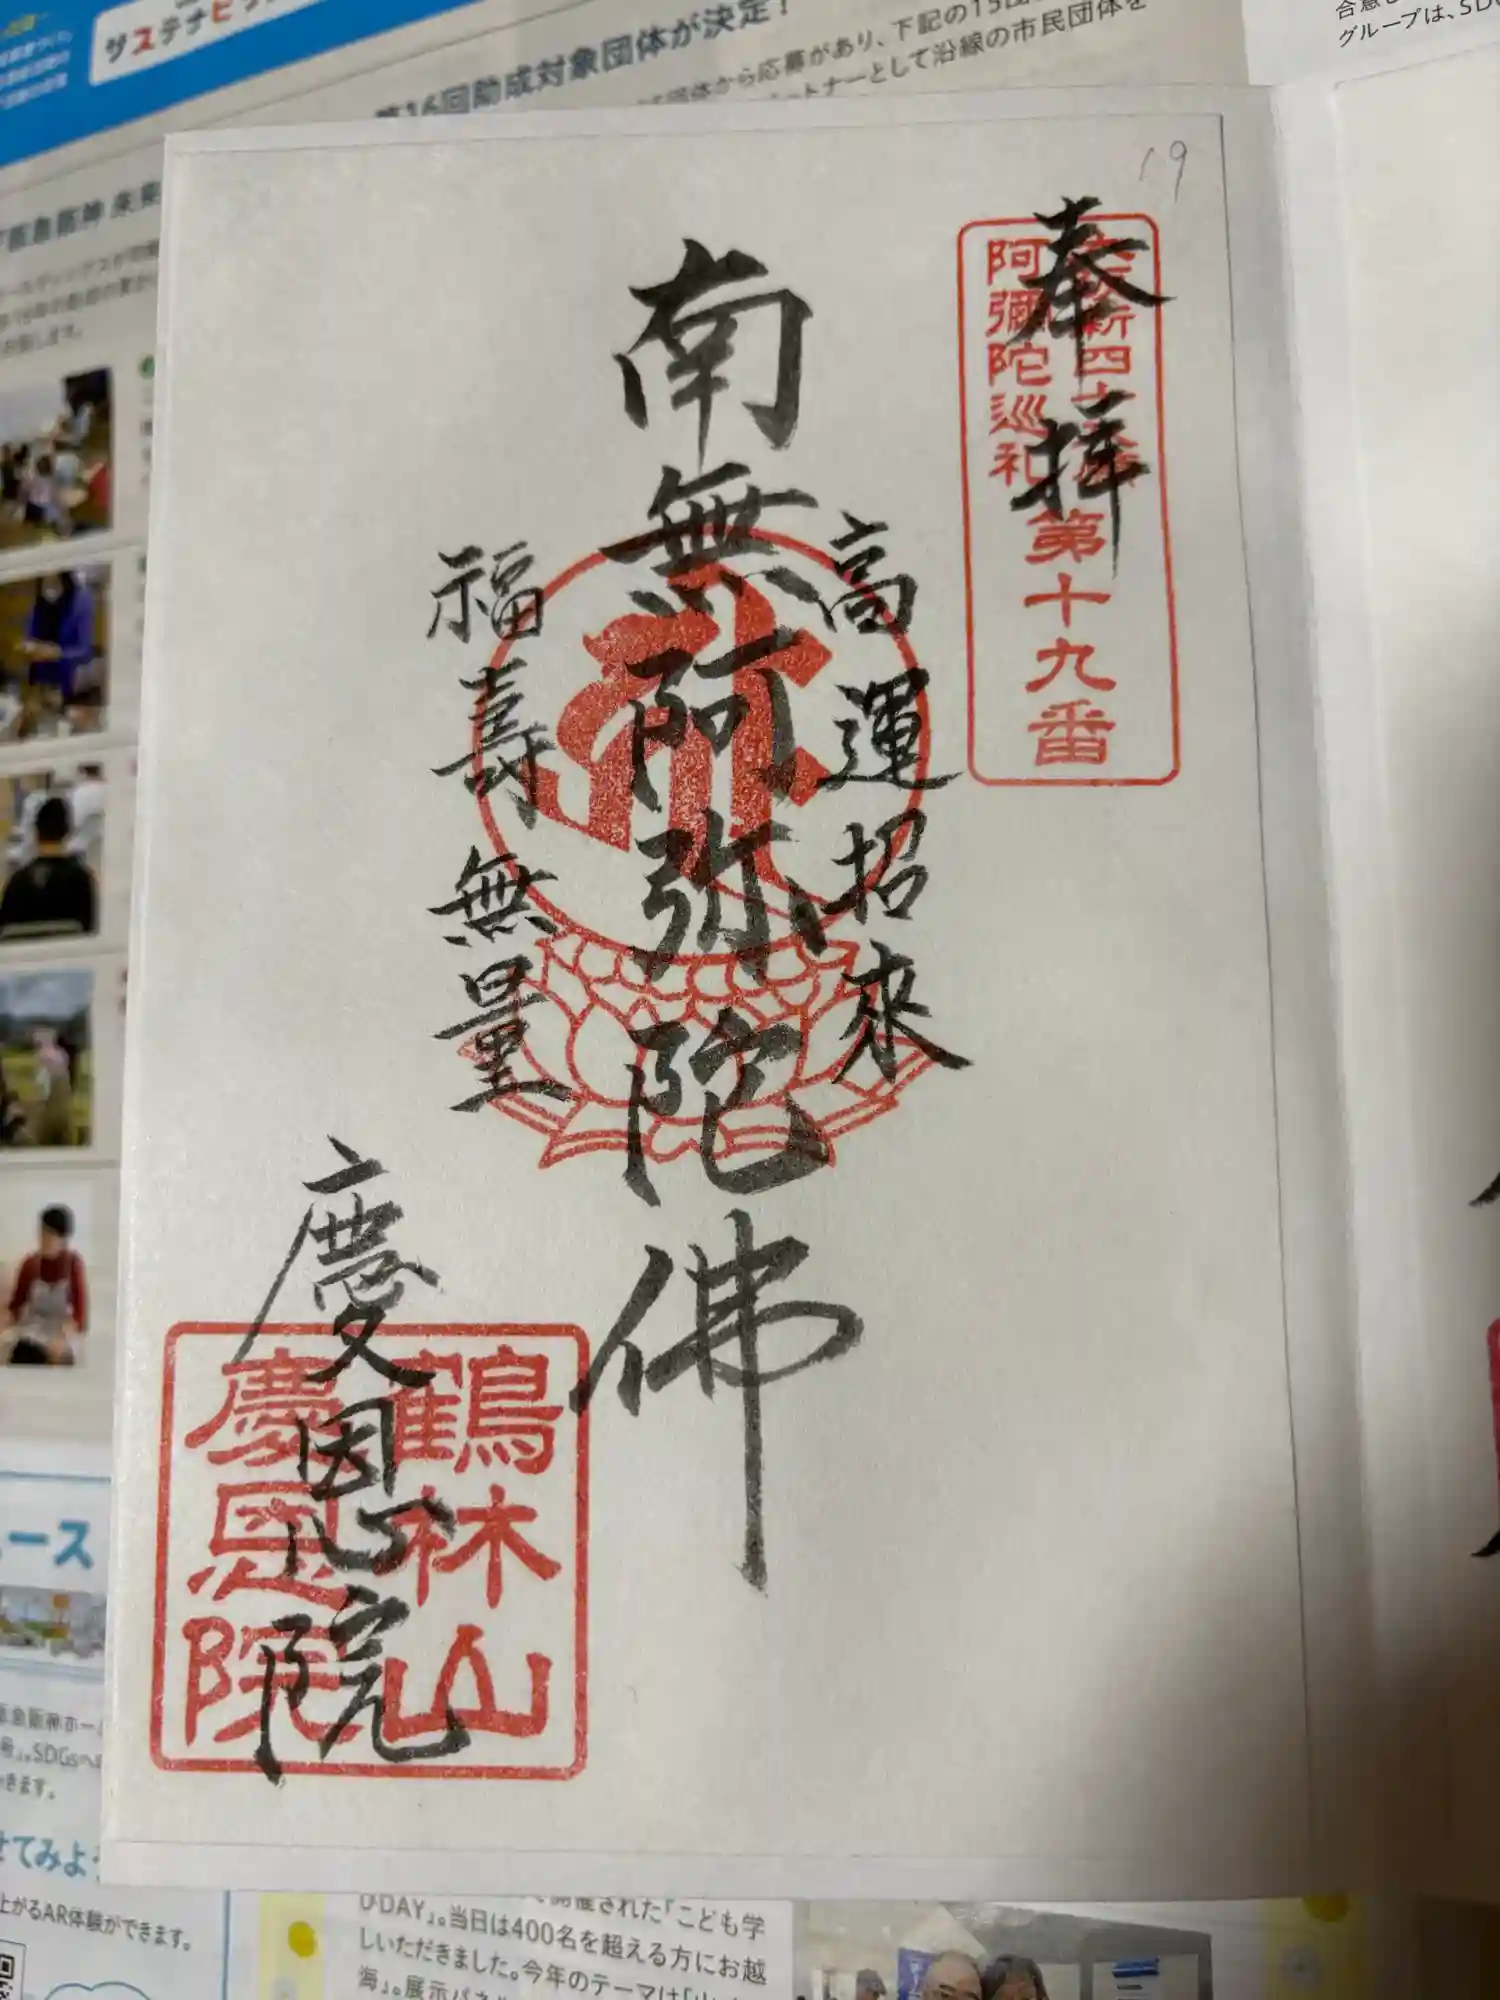 サステナビ
第16回助成対象団体が決定！
団体から応募があり、下記の15団
トナーとして沿線の市民団体を
グループは、SD
阪急阪神 未来
19
奉拝
阿彌陀巡礼
第十九番
高運招来
南無阿弥陀佛
福壽無量
慶恩院
鶴林山
慶恩院
ース
せてみよう
上がるAR体験ができます。
号」。SDGsへ
きます。
びDAY」。当日は400名を超える方にお越
しいただきました。今年のテーマは「
海」。展示パネル
で開催された「こども学